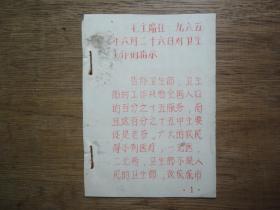 毛主席在一九六五
年六月二十六日对卫生
工作的指示
告诉卫生部，卫生
部的工作只给全国人口
的百分之十五服务，而
且这百分之十五中主要
还是老爷，广大的农民
得不到医疗，一无医，
二无药，卫生部不是人
民的卫生部，改成城市
·1·